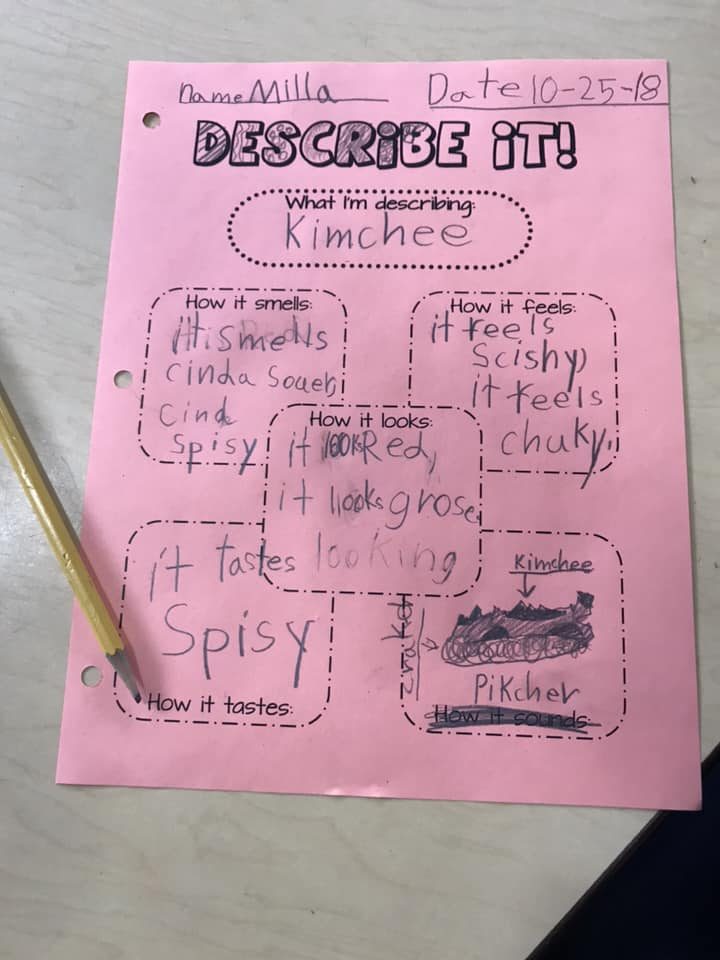 Name Milla Date 10-25-18
DESCRIBE IT!
What I'm describing:
Kimchee
How it smells:
it smells
cinda Souer,
cind
Spisy
How it feels:
it feels
Scishy,
it feels
chuky,
How it looks:
it looks Red,
it looks grose
looking
it tastes
Spisy
How it tastes:
Kimchee
Pikcher
How it sounds